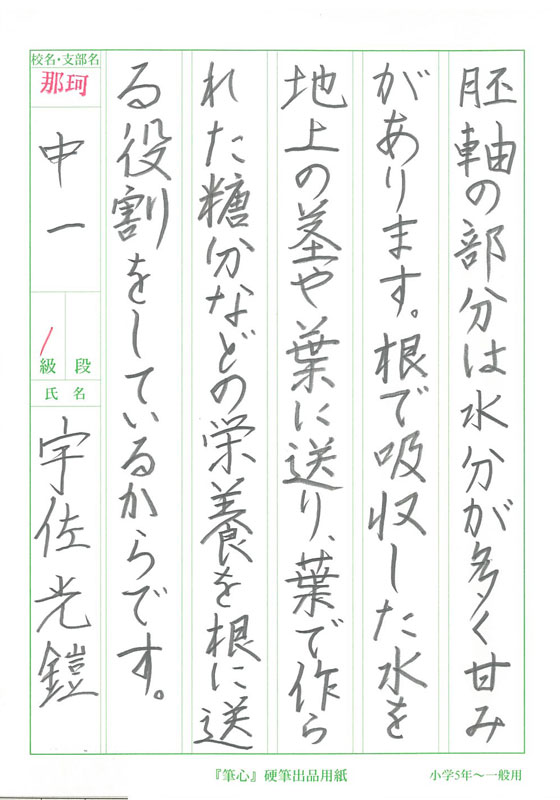 胚軸の部分は水分が多く甘み
があります。根で吸収した水を
地上の茎や葉に送り、葉で作ら
れた糖分などの栄養を根に送
る役割をしているからです。
校名・支部名
那珂
中一
段
級
1
氏名
宇佐光鎧
『筆心』硬筆出品用紙
小学5年〜一般用